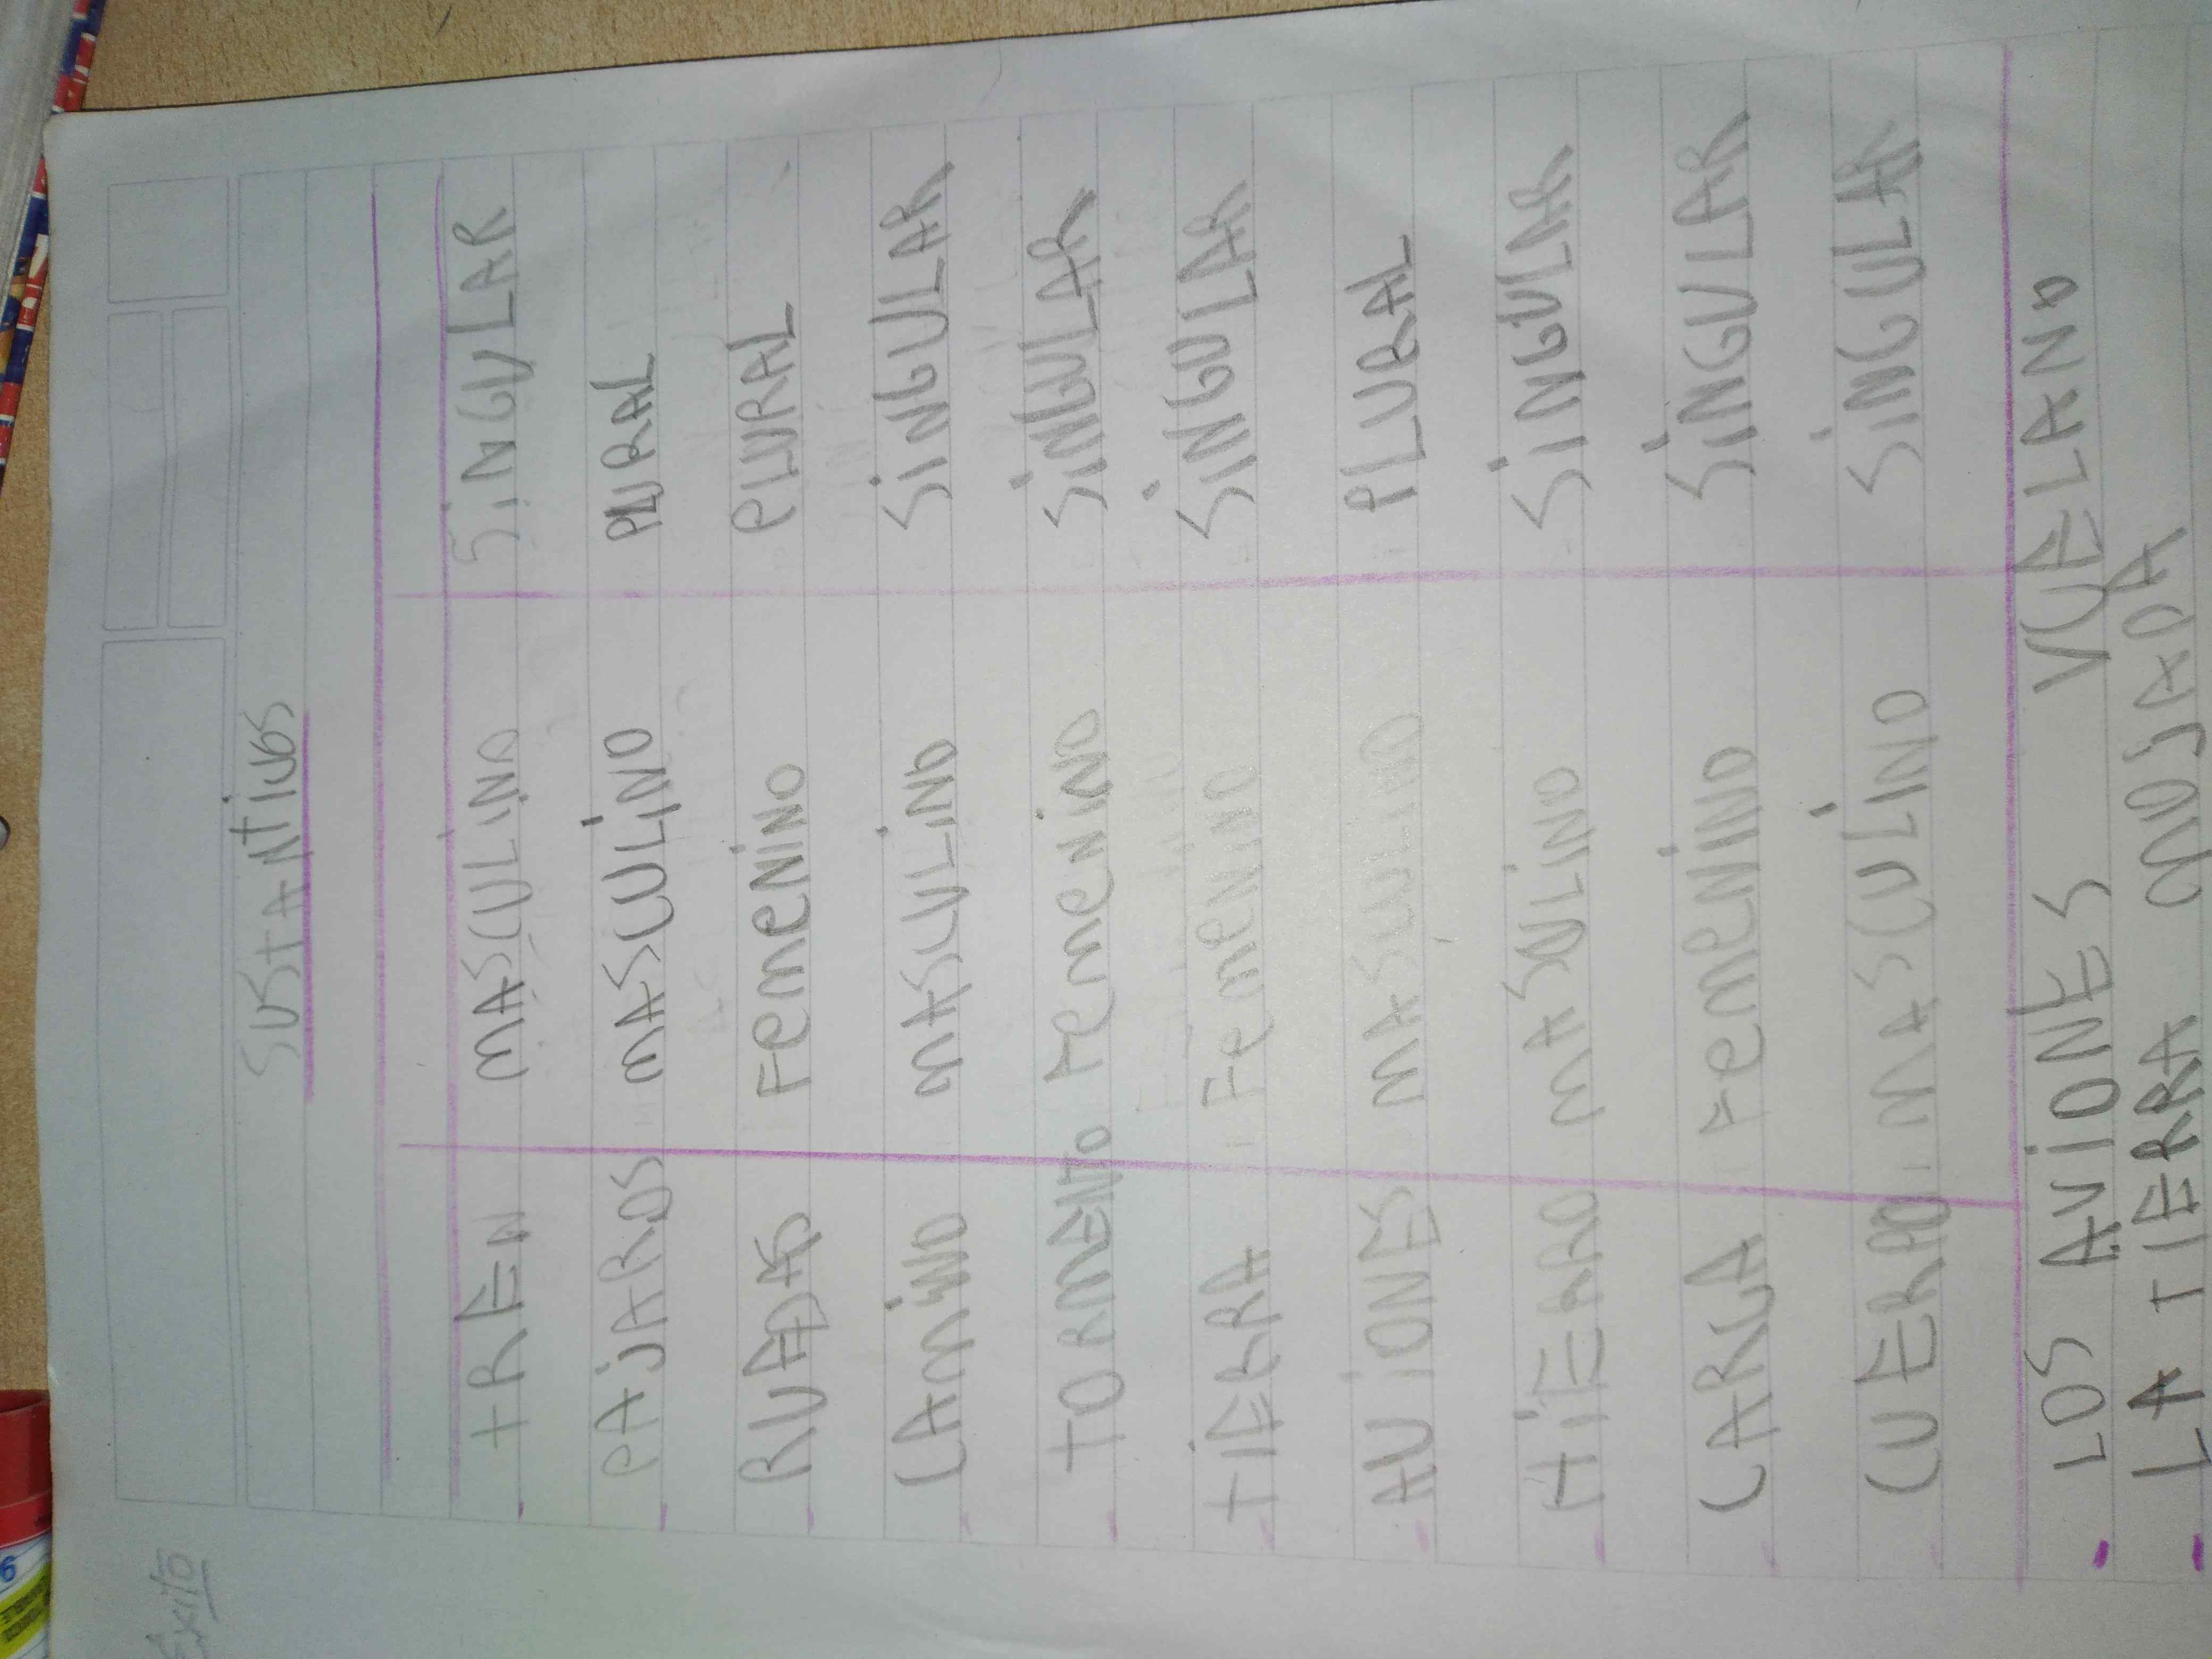 Exito
SUSTANTIVOS
TREN MASCULINO SINGULAR
PAJAROS MASCULINO PLURAL
RUEDAS FEMENINO PLURAL
CAMINO MASCULINO SINGULAR
TORMENTO FEMENINO SINGULAR
TIERRA FEMENINO SINGULAR
AVIONES MASCULINO PLURAL
HIERRO MASCULINO SINGULAR
CARLA FEMENINO SINGULAR
CUERPO MASCULINO SINGULAR
LOS AVIONES VUELAND
LA TIERRA MOJADA